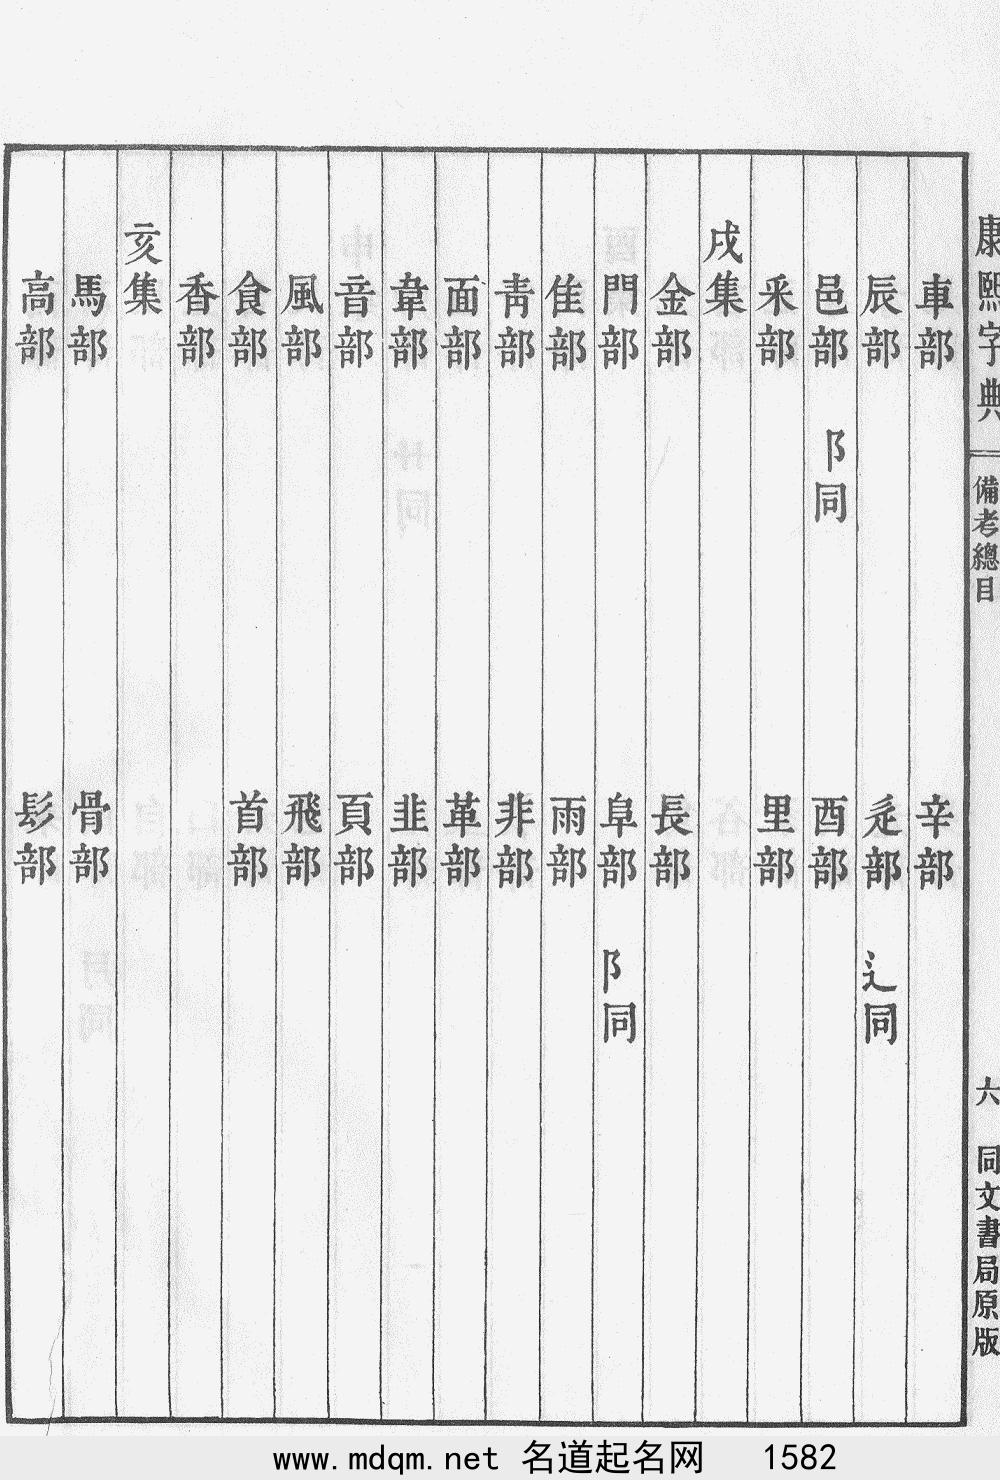 康熙字典 備考總目 六 同文書局原版
車部 辛部
辰部 辵部 辶同
邑部 阝同 酉部
釆部 里部
戌集
金部 長部
門部 阜部 阝同
隹部 雨部
靑部 非部
面部 革部
韋部 韭部
音部 頁部
風部 飛部
食部 首部
香部
亥集
馬部 骨部
高部 髟部
www.mdqm.net 名道起名网 1582